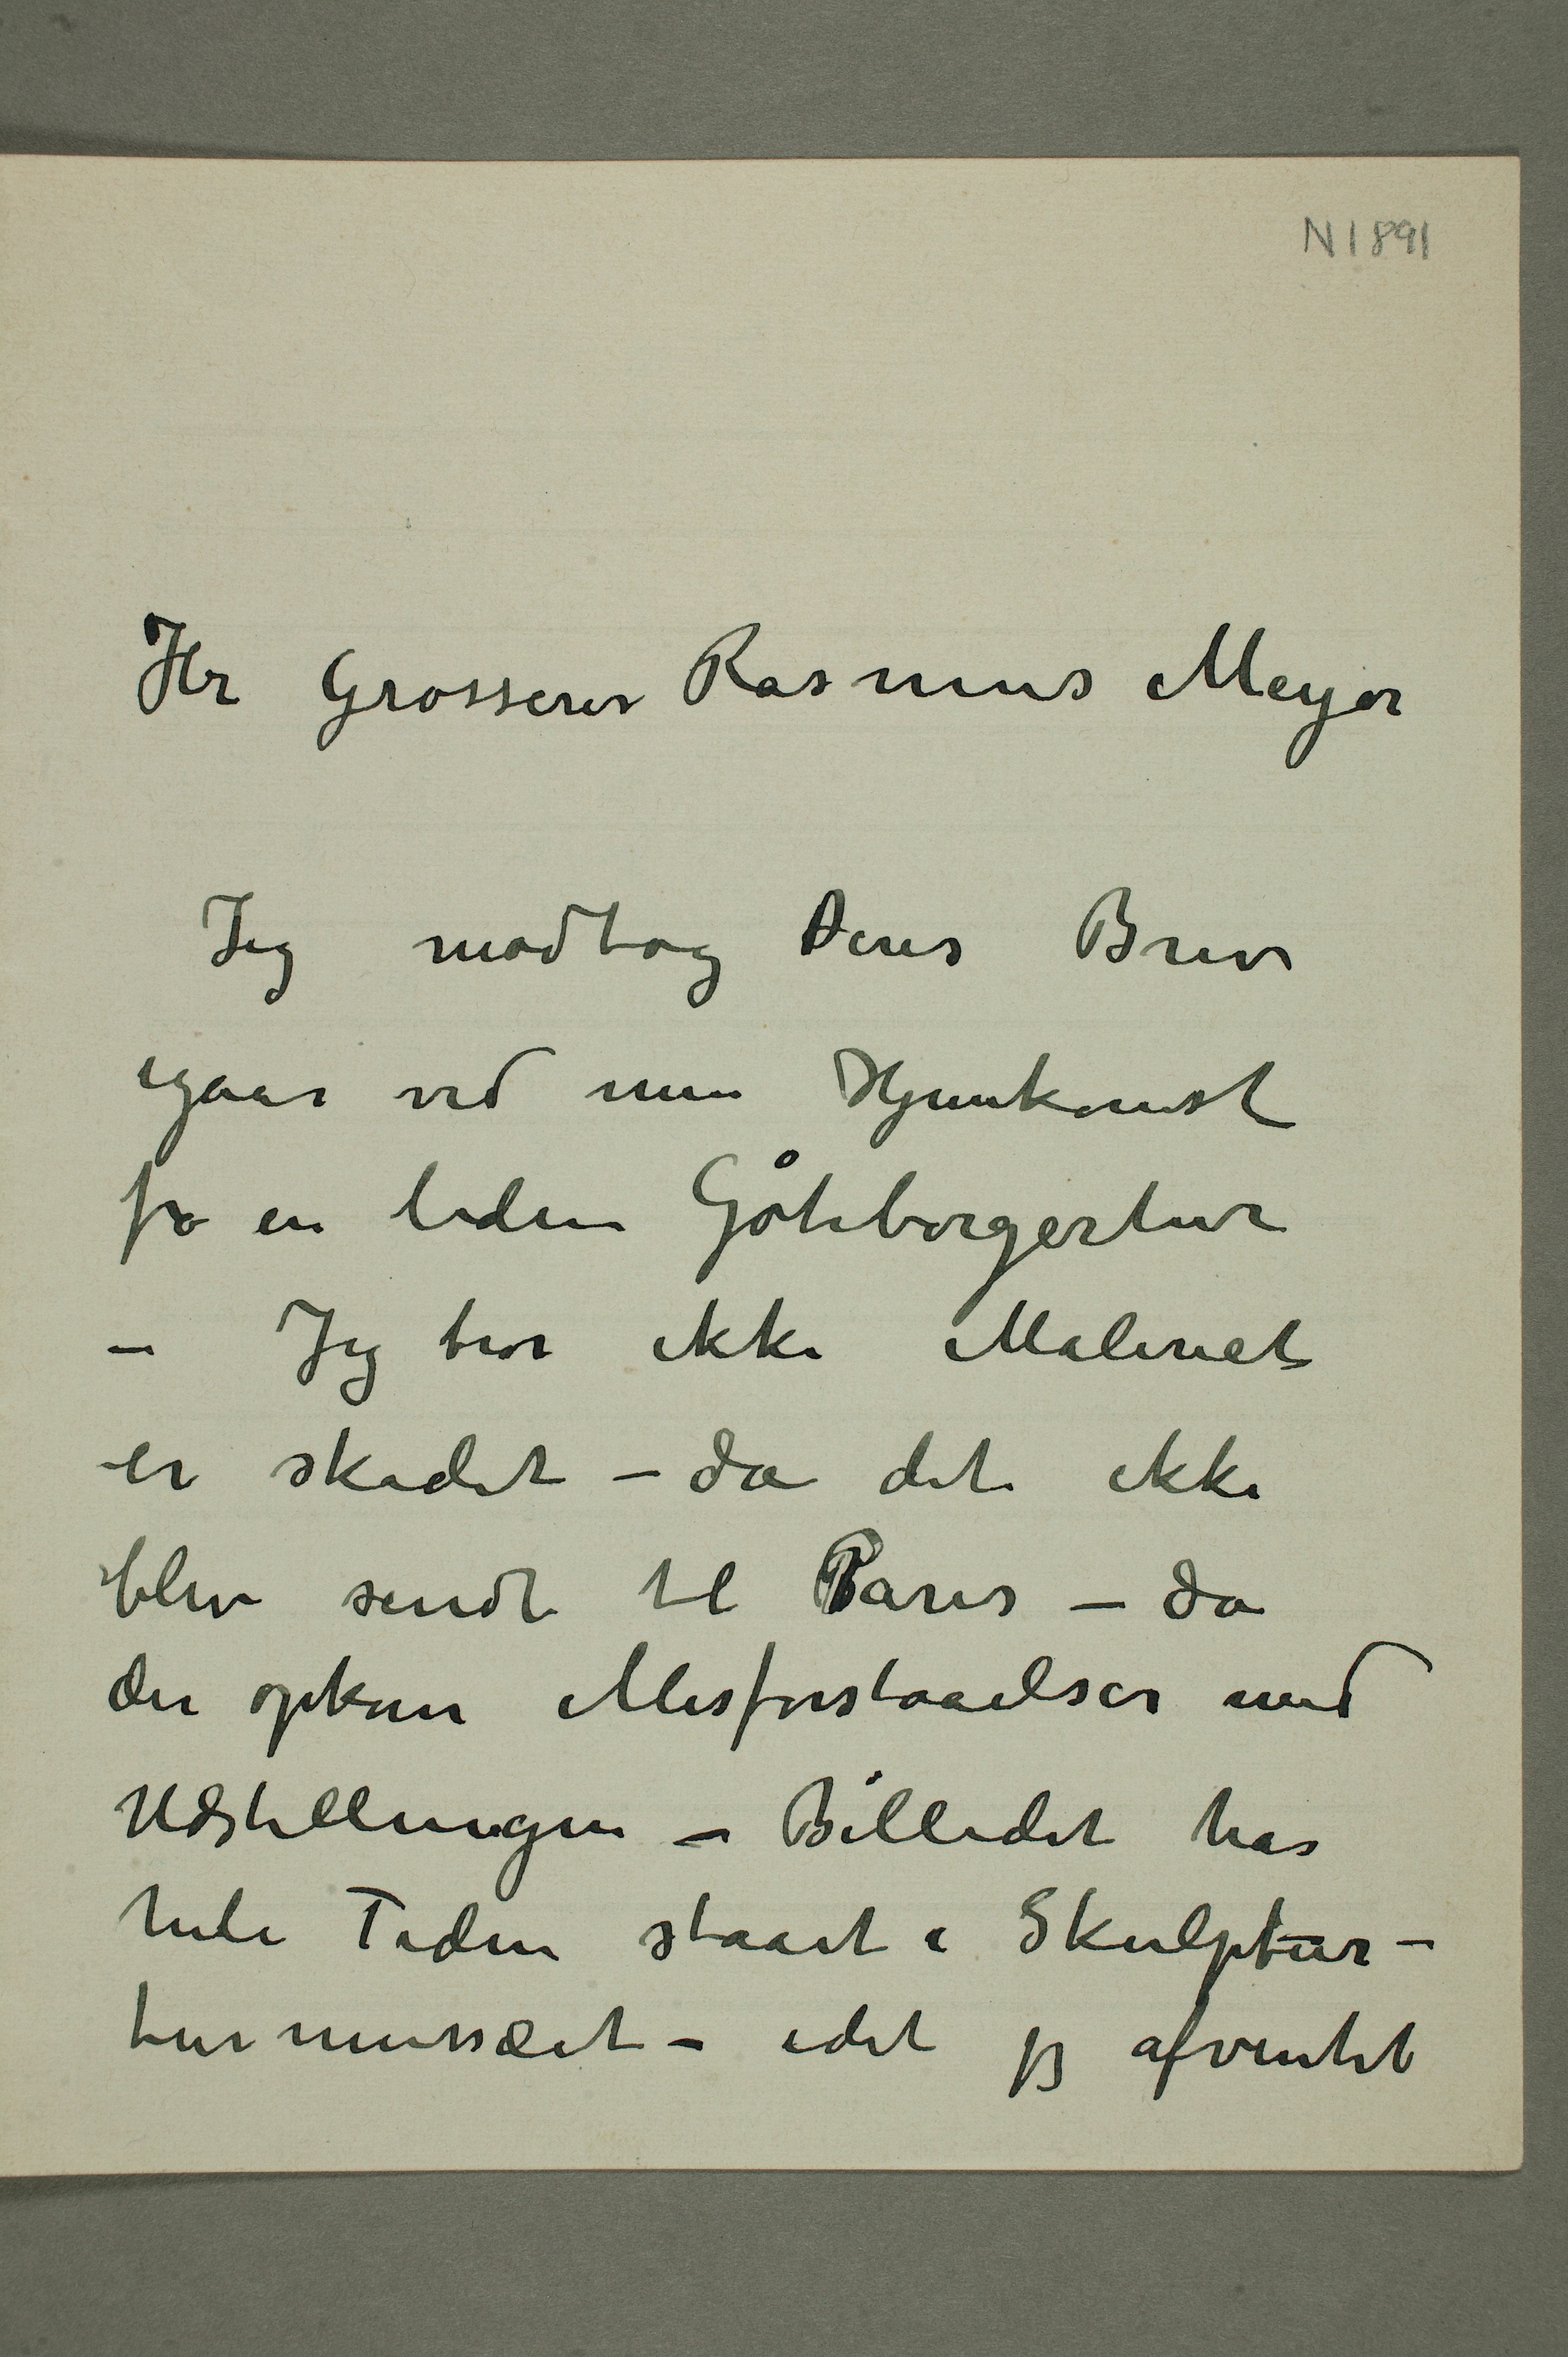 N 1891
Hr Grosserer Rasmus Meyer
Jeg modtog Deres Brev
igaar ved min Hjemkomst
fra en liden Göteborgertur
– Jeg tror ikke Maleriet
er skadet – da det ikke
blev sendt til Paris – da
der opkom Misforstaaelser med
Udstillingen – Billedet har
hele Tiden staaet i Skulptur-
turmusæet – idet jeg afventet